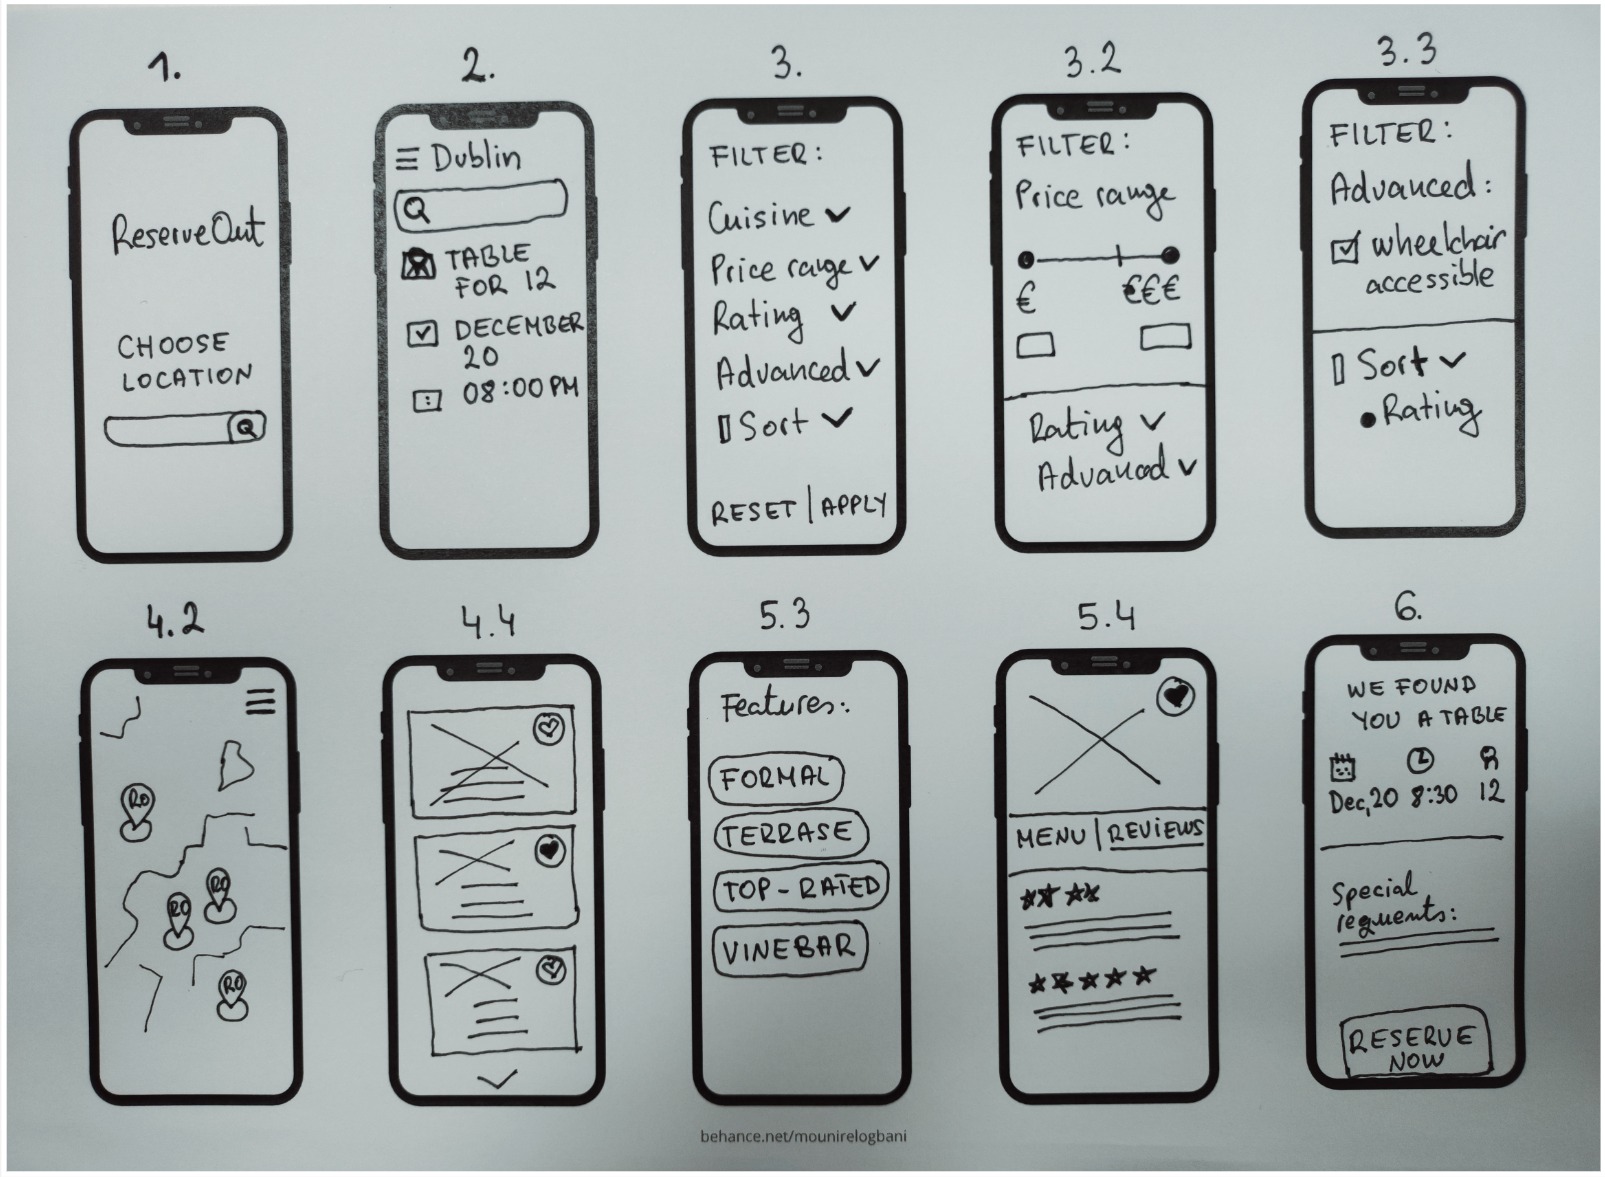 1.
ReserveOut
CHOOSE
LOCATION
2.
Dublin
TABLE
FOR 12
DECEMBER
20
08:00 PM
3.
FILTER:
Cuisine
Price range
Rating
Advanced
Sort
RESET | APPLY
3.2
FILTER:
Price range
€ €€€
Rating
Advanced
3.3
FILTER:
Advanced:
wheelchair
accessible
Sort
Rating
4.2
RO
RO
RO
RO
4.4
5.3
Features:
FORMAL
TERRASE
TOP-RATED
VINEBAR
5.4
MENU | REVIEWS
6.
WE FOUND
YOU A TABLE
Dec, 20 8:30 12
Special
requents:
RESERVE
NOW
behance.net/mounirelogbani